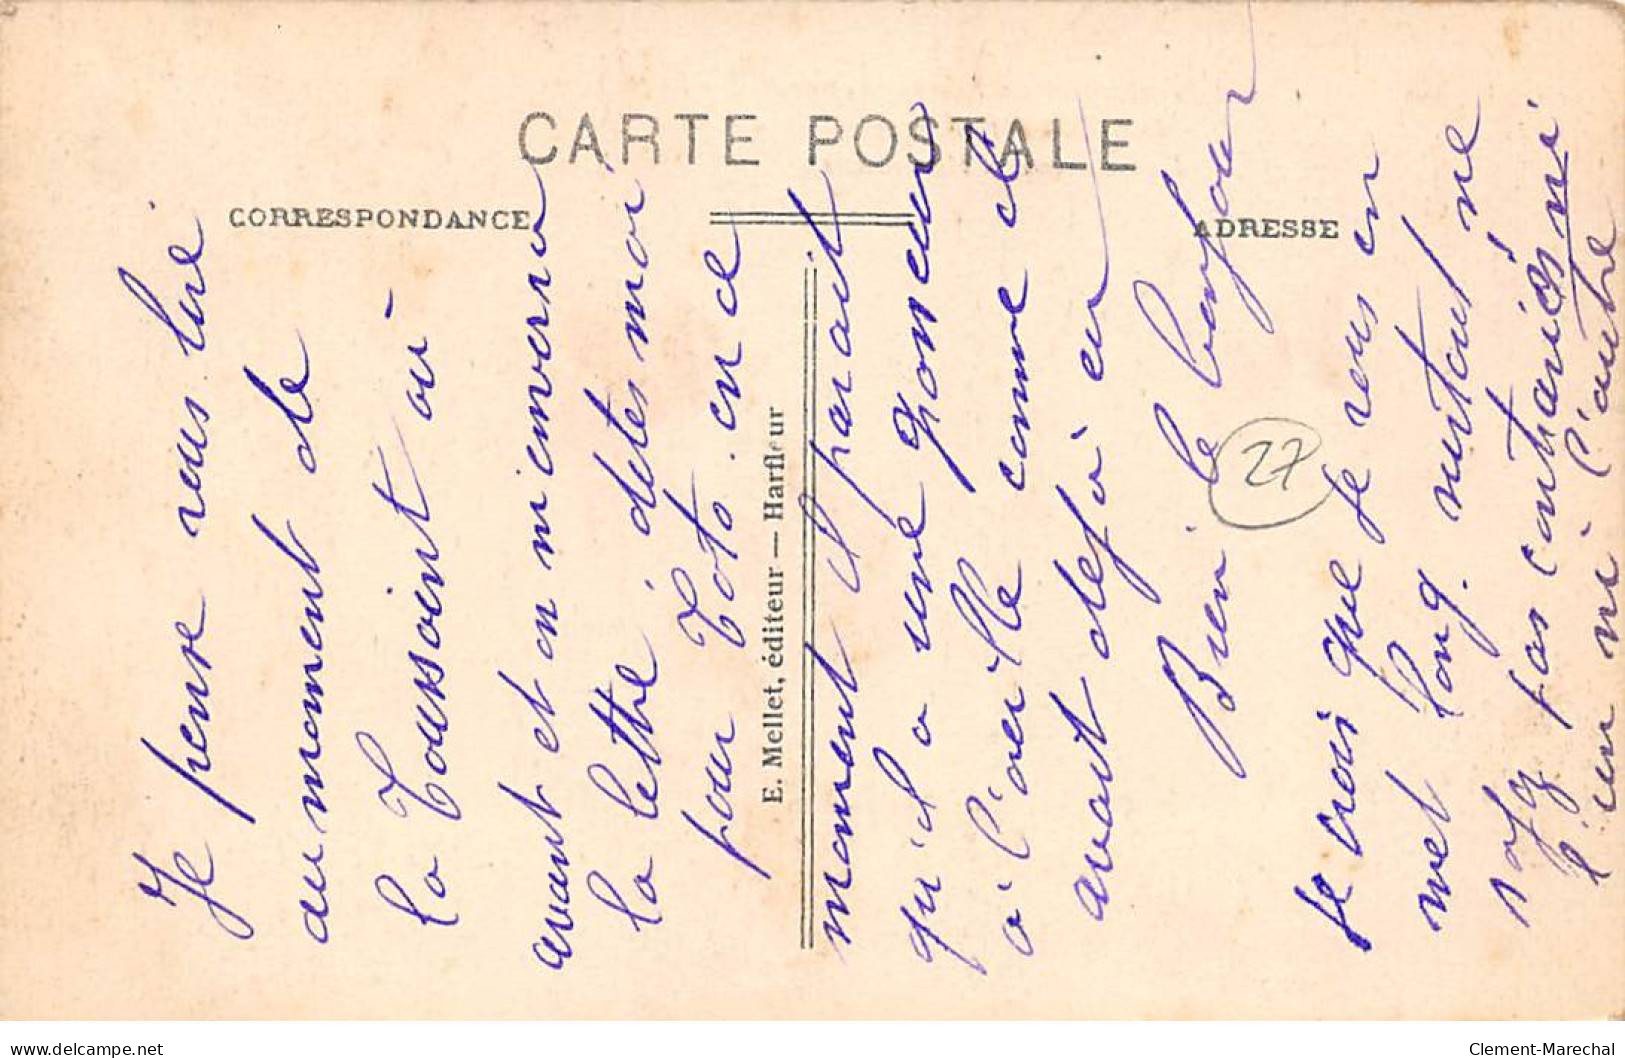 CARTE POSTALE
CORRESPONDANCE
ADRESSE
Je pense vous lire
au moment de
la Toussaint ou
avant et on m'enverra
la lettre dites moi
pour Toto. en ce
moment il parait
qu'il a une grosseur
à l'oreille comme il
avait déjà eu
Bien le bonjour
Je crois que je vous en
met long. surtout ne
soyez pas contrariés ni
l'un ni l'autre
E. Mellet, éditeur — Harfleur
27
delcampe.net
Clement-Marechal